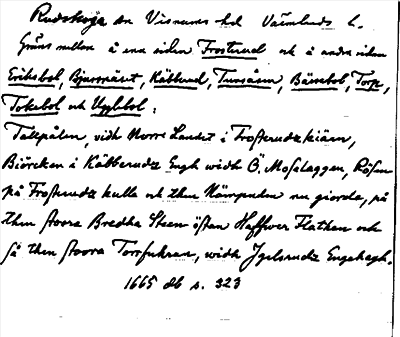 Rudskoga sn Visnums hd Värmlands l.
Gräns mellan å ena sidan Frosterud och å andra sidan
Eriksbol, Bjurenäset, Kälterud, Tunsåsen, Bärsbol, Torp,
Tokebol och Ugglebol:
Tallpålen, vidh Norre Landet i Frosterudz kiärn,
Biörcken i Kälberudz Engh widh Ö. Moslaggen, Rösen
på Frosterudz kulla och then Kämpuden nu giorda, på
then stoora Bredha Steen östan Haffwer Flathan och
så then stoora Torrfuhran, widh Igelsrudz Engehagh.
1665 db s. 323